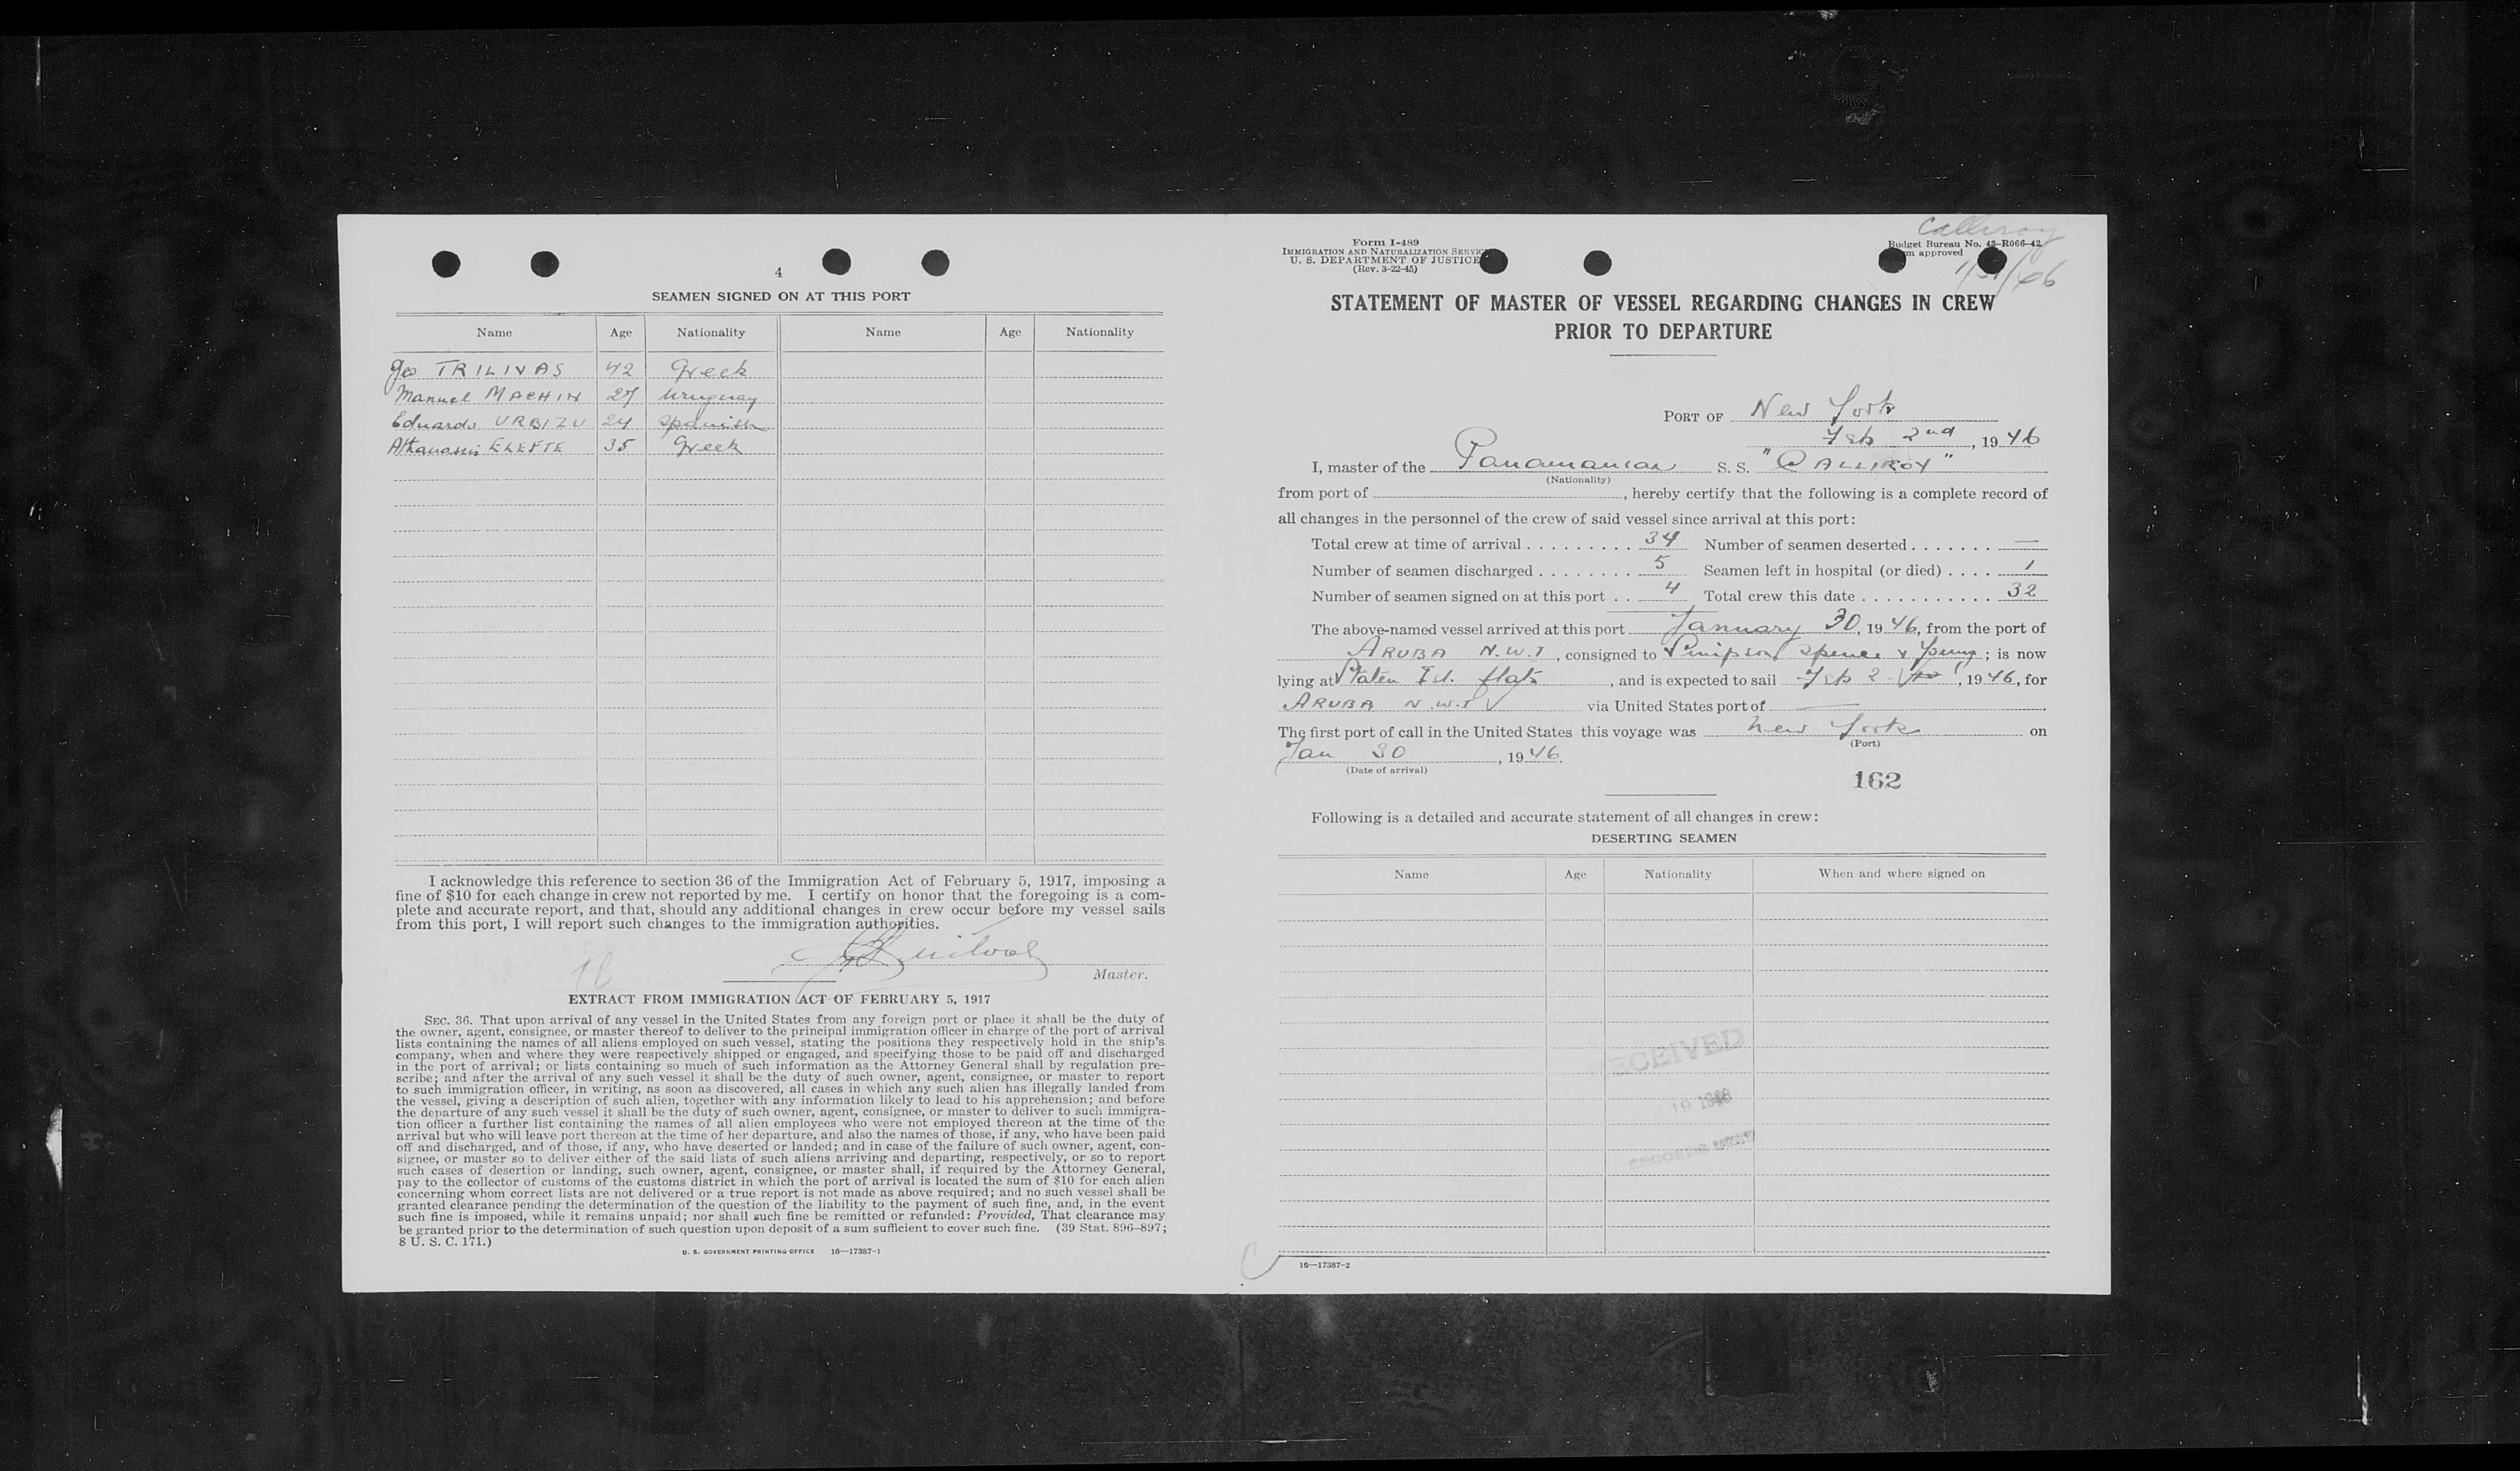 4
SEAMEN SIGNED ON AT THIS PORT
Name Age Nationality Name Age Nationality
Geo TRILIVAS 42 Greek
Manuel MACHIN 27 Uruguay
Eduardo URBIZU 24 Spanish
Athanassis ELEFTE 35 Greek
I acknowledge this reference to section 36 of the Immigration Act of February 5, 1917, imposing a
fine of $10 for each change in crew not reported by me. I certify on honor that the foregoing is a com-
plete and accurate report, and that, should any additional changes in crew occur before my vessel sails
from this port, I will report such changes to the immigration authorities.
Master.
EXTRACT FROM IMMIGRATION ACT OF FEBRUARY 5, 1917
SEC. 36. That upon arrival of any vessel in the United States from any foreign port or place it shall be the duty of
the owner, agent, consignee, or master thereof to deliver to the principal immigration officer in charge of the port of arrival
lists containing the names of all aliens employed on such vessel, stating the positions they respectively hold in the ship's
company, when and where they were respectively shipped or engaged, and specifying those to be paid off and discharged
in the port of arrival; or lists containing so much of such information as the Attorney General shall by regulation pre-
scribe; and after the arrival of any such vessel it shall be the duty of such owner, agent, consignee, or master to report
to such immigration officer, in writing, as soon as discovered, all cases in which any such alien has illegally landed from
the vessel, giving a description of such alien, together with any information likely to lead to his apprehension; and before
the departure of any such vessel it shall be the duty of such owner, agent, consignee, or master to deliver to such immigra-
tion officer a further list containing the names of all alien employees who were not employed thereon at the time of the
arrival but who will leave port thereon at the time of her departure, and also the names of those, if any, who have been paid
off and discharged, and of those, if any, who have deserted or landed; and in case of the failure of such owner, agent, con-
signee, or master so to deliver either of the said lists of such aliens arriving and departing, respectively, or so to report
such cases of desertion or landing, such owner, agent, consignee, or master shall, if required by the Attorney General,
pay to the collector of customs of the customs district in which the port of arrival is located the sum of $10 for each alien
concerning whom correct lists are not delivered or a true report is not made as above required; and no such vessel shall be
granted clearance pending the determination of the question of the liability to the payment of such fine, and, in the event
such fine is imposed, while it remains unpaid; nor shall such fine be remitted or refunded: Provided, That clearance may
be granted prior to the determination of such question upon deposit of a sum sufficient to cover such fine. (39 Stat. 896-897;
8 U. S. C. 171.)
U. S. GOVERNMENT PRINTING OFFICE 16—17387-1
Calliroy
Form I-489
IMMIGRATION AND NATURALIZATION SERVICE
U. S. DEPARTMENT OF JUSTICE
(Rev. 3-22-45)
Budget Bureau No. 43-R066-42
approved
STATEMENT OF MASTER OF VESSEL REGARDING CHANGES IN CREW
PRIOR TO DEPARTURE
PORT OF New York
Feb 2nd, 1946
I, master of the Panamanian S. S. "CALLIROY"
(Nationality)
from port of , hereby certify that the following is a complete record of
all changes in the personnel of the crew of said vessel since arrival at this port:
Total crew at time of arrival . . . . . . . . . 34 Number of seamen deserted . . . . . . . —
Number of seamen discharged . . . . . . . . 5 Seamen left in hospital (or died) . . . . 1
Number of seamen signed on at this port . . 4 Total crew this date . . . . . . . . . . . 32
The above-named vessel arrived at this port January 30, 1946, from the port of
ARUBA N.W.I, consigned to Simpson Spence & Young; is now
lying at Staten Isl. flats, and is expected to sail Feb 2, 1946, for
ARUBA N.W.I via United States port of —
The first port of call in the United States this voyage was New York on
(Port)
Jan 30, 1946.
(Date of arrival)
162
Following is a detailed and accurate statement of all changes in crew:
DESERTING SEAMEN
Name Age Nationality When and where signed on
RECEIVED
19
16—17387-2